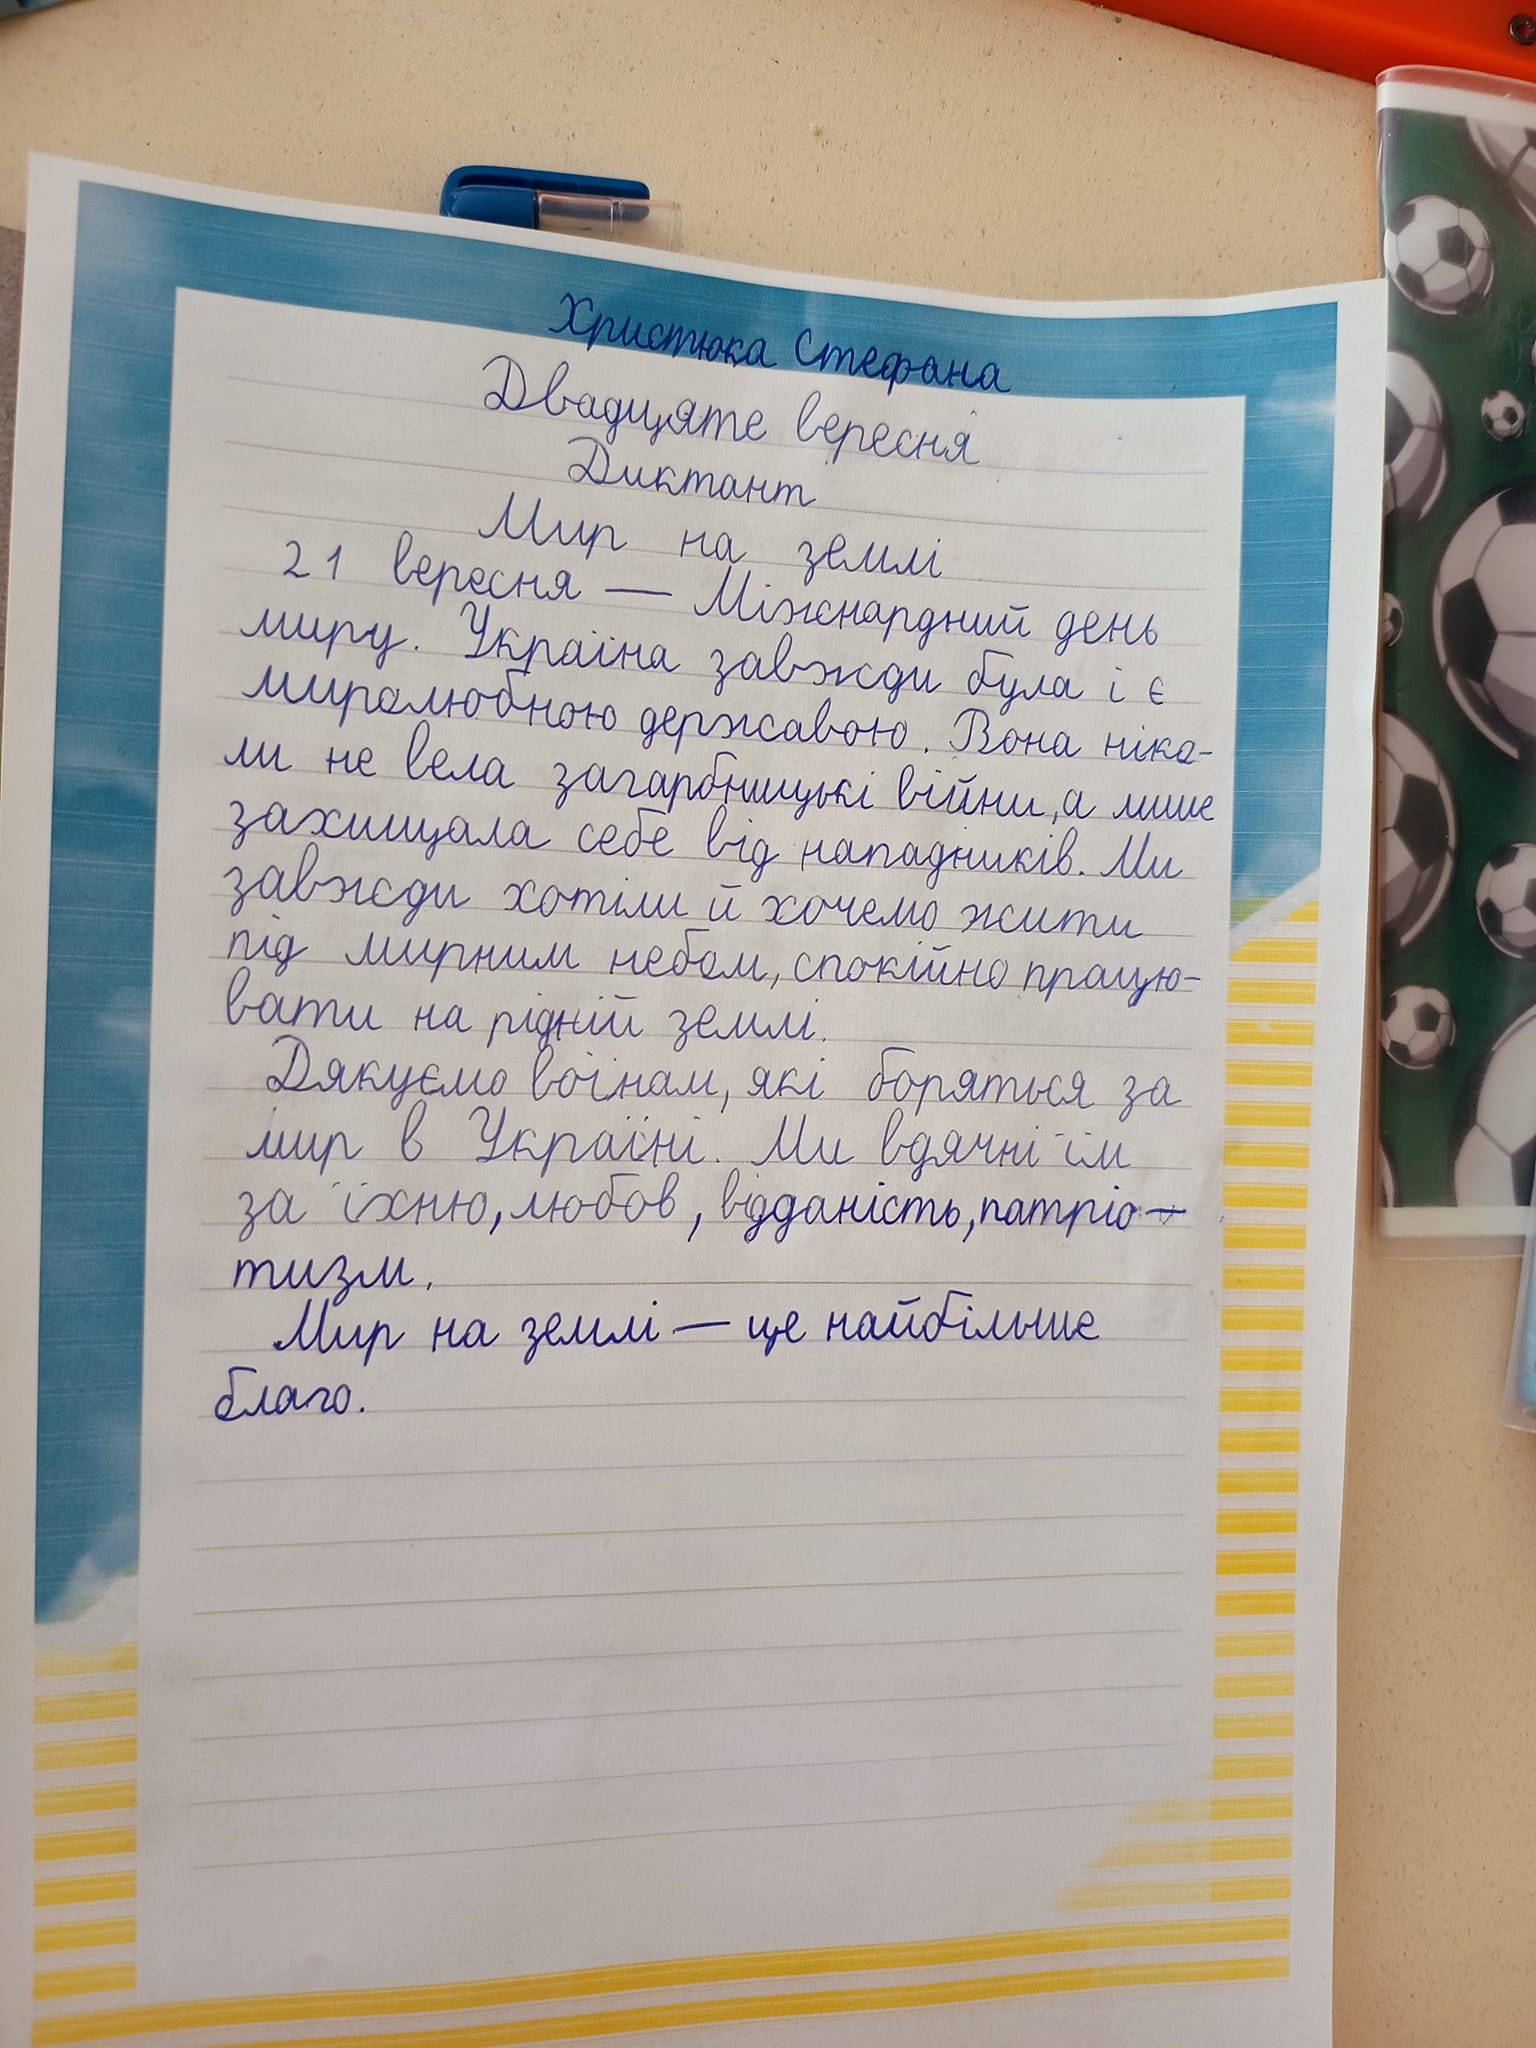 Христюка Стефана
Двадцяте вересня
Диктант
Мир на землі
21 вересня — Міжнардний день
миру. Україна завжди була і є
миролюбною державою. Вона ніко-
ли не вела загарбницькі війни, а лише
захищала себе від нападників. Ми
завжди хотіли й хочемо жити
під мирним небом, спокійно працю-
вати на рідній землі.
Дякуємо воїнам, які боряться за
мир в Україні. Ми вдячні їм
за їхню, любов, відданість, патріо-
тизм.
Мир на землі — це найбільше
благо.